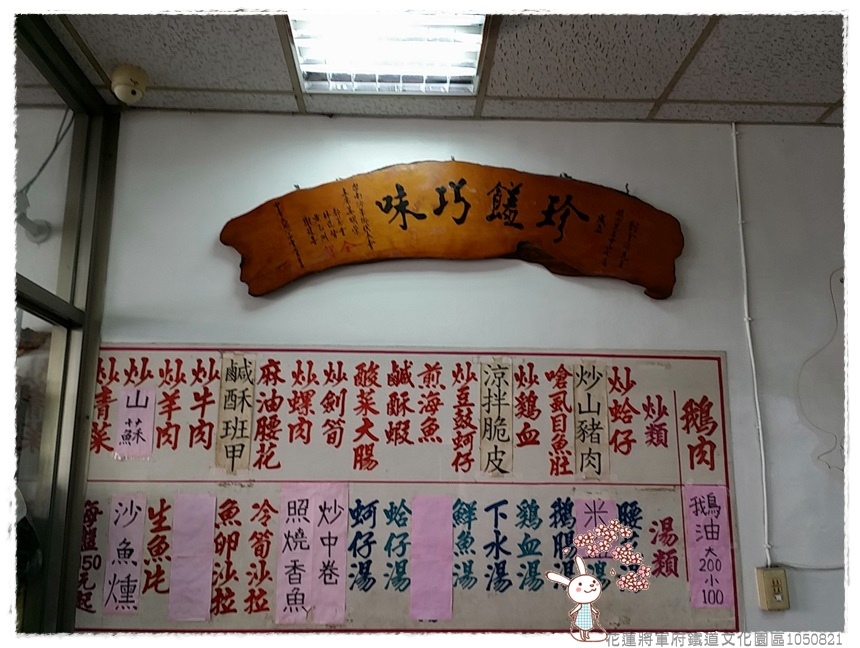 珍饈巧味
鵝肉
炒類
炒蛤仔
炒山豬肉
嗆虱目魚肚
炒鷄血
涼拌脆皮
炒豆鼓蚵仔
煎海魚
鹹酥蝦
酸菜大腸
炒劍筍
炒螺肉
麻油腰花
鹹酥班甲
炒牛肉
炒羊肉
炒山蘇
炒青菜
鵝油大200小100
湯類
鷄血湯
下水湯
鮮魚湯
蛤仔湯
蚵仔湯
炒中卷
照燒香魚
冷筍沙拉
魚卵沙拉
生魚片
沙魚燻
每盤50元起
花蓮將軍府鐵道文化園區1050821